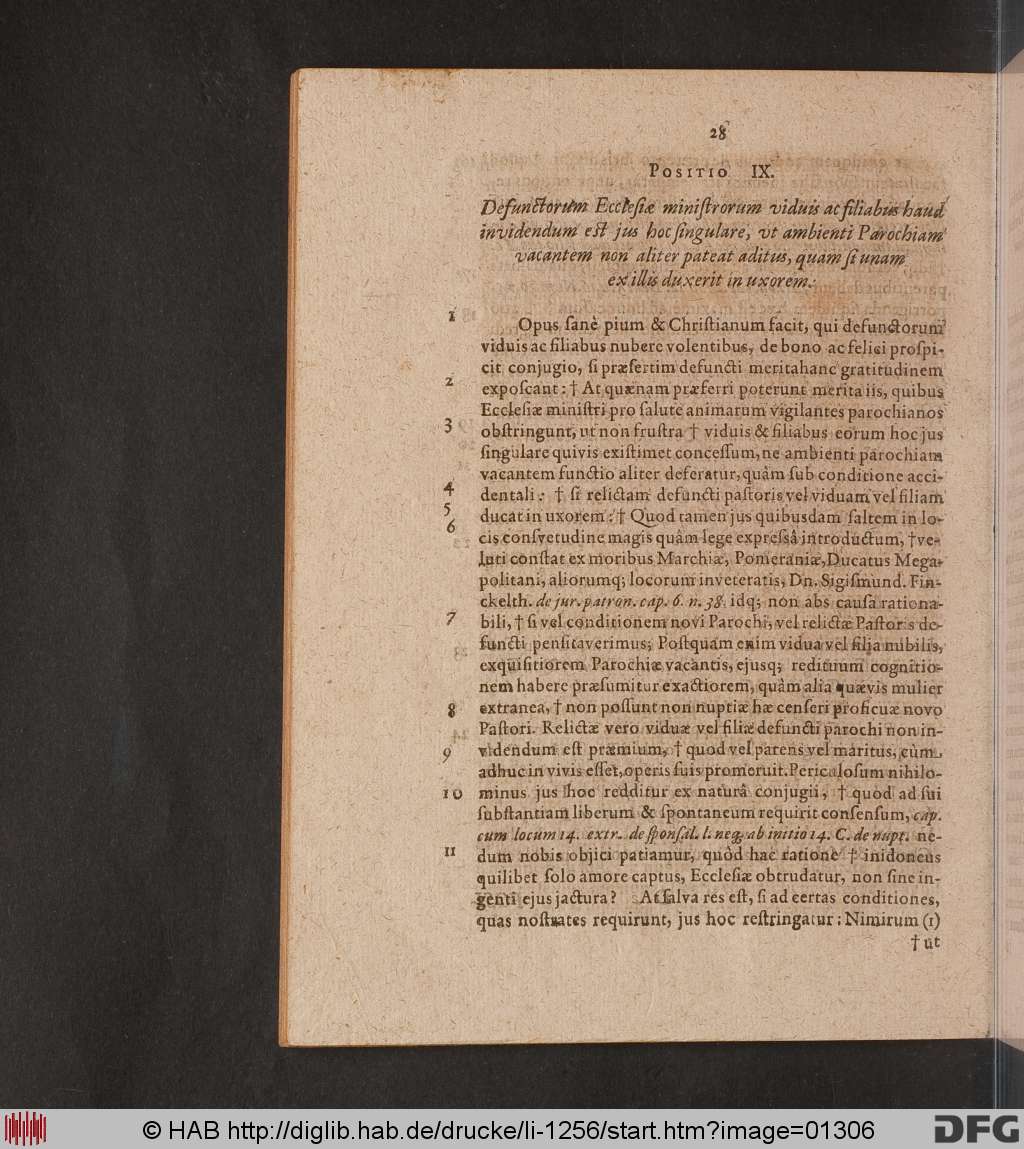 28
POSITIO IX.
Defunctorum Ecclesiæ ministrorum viduis ac filiabus haud
invidendum est jus hoc singulare, vt ambienti Parochiam
vacantem non aliter pateat aditus, quam si unam
ex illis duxerit in uxorem.
1 Opus sanè pium & Christianum facit, qui defunctorum
viduis ac filiabus nubere volentibus, de bono ac felici prospi-
cit conjugio, si præsertim defuncti merita hanc gratitudinem
2 exposcant: † At quænam præferri poterunt merita iis, quibus
Ecclesiæ ministri pro salute animarum vigilantes parochianos
3 obstringunt, ut non frustra † viduis & filiabus eorum hoc jus
singulare quivis existimet concessum, ne ambienti parochiam
vacantem functio aliter deferatur, quàm sub conditione acci-
4 dentali: † si relictam defuncti pastoris vel viduam vel filiam
5 ducat in uxorem: † Quod tamen jus quibusdam saltem in lo-
6 cis consvetudine magis quàm lege expressâ introductum, † ve-
luti constat ex moribus Marchiæ, Pomeraniæ, Ducatus Mega-
politani, aliorumq; locorum inveteratis, Dn. Sigismund. Fin-
ckelth. de jur. patron. cap. 6. n. 38. idq; non abs causa rationa-
7 bili, † si vel conditionem novi Parochi, vel relictæ Pastoris de-
functi pensitaverimus; Postquam enim vidua vel filia nubilis,
exquisitiorem Parochiæ vacantis, ejusq; redituum cognitio-
nem habere præsumitur exactiorem, quàm alia quævis mulier
8 extranea, † non possunt non nuptiæ hæ censeri proficuæ novo
Pastori. Relictæ vero viduæ vel filiæ defuncti parochi non in-
9 videndum est præmium, † quod vel parens vel maritus, cùm
adhuc in vivis esset, operis suis promeruit. Periculosum nihilo-
10 minus jus hoc redditur ex naturâ conjugii, † quod ad sui
substantiam liberum & spontaneum requirit consensum, cap.
cum locum 14. extr. de sponsal. l. neq; ab initio 14. C. de nupt. ne-
11 dum nobis objici patiamur, quòd hac ratione † inidoneus
quilibet solo amore captus, Ecclesiæ obtrudatur, non sine in-
genti ejus jactura? At salva res est, si ad certas conditiones,
quas nostrates requirunt, jus hoc restringatur: Nimirum (1)
† ut
© HAB http://diglib.hab.de/drucke/li-1256/start.htm?image=01306
DFG